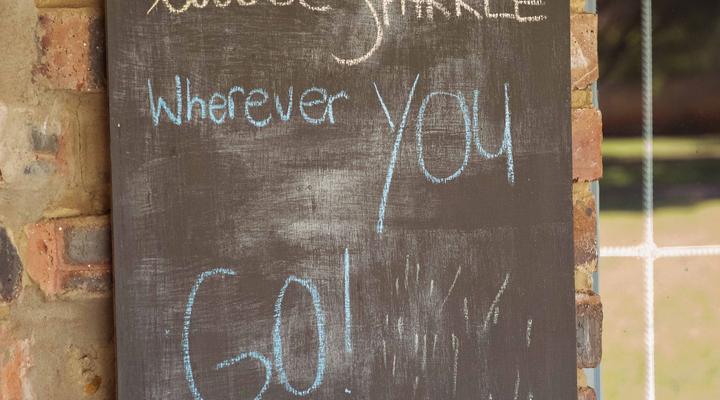 SPARKLE
Wherever YOU
GO!